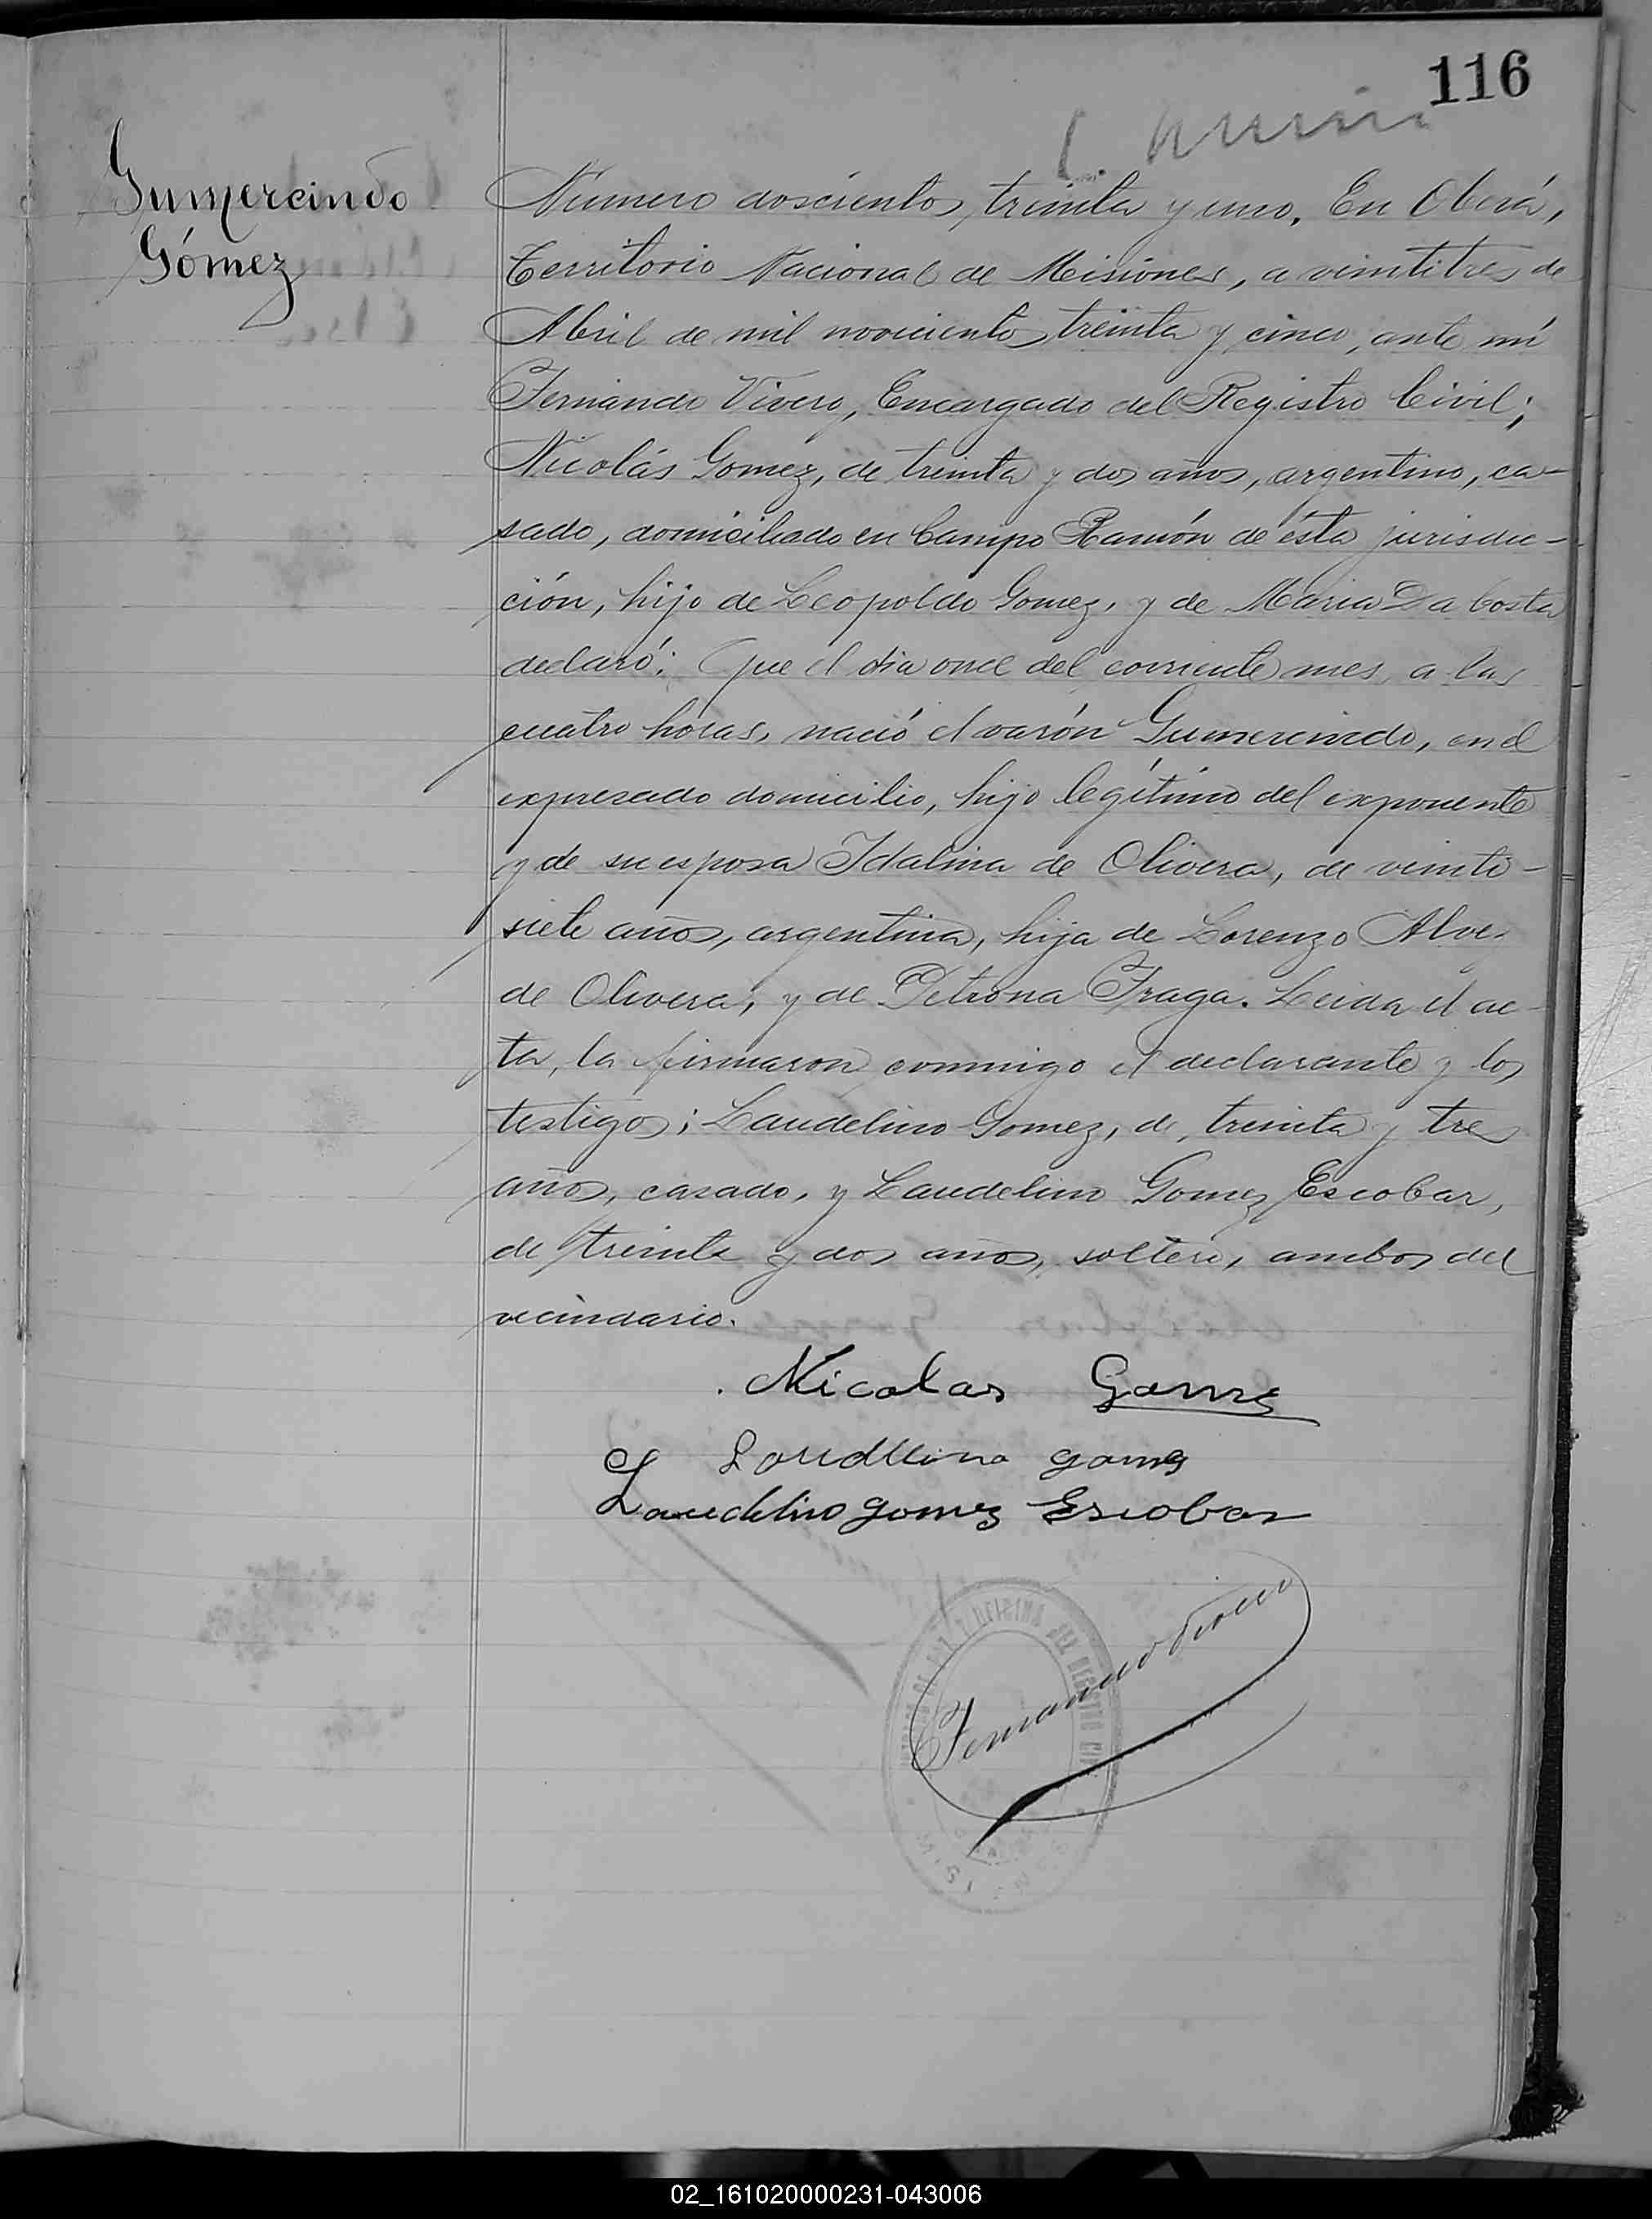 116
Gumercindo
Gómez
Número doscientos treinta y uno. En Oberá,
Territorio Nacional de Misiones, a veintitres de
Abril de mil novecientos treinta y cinco, ante mí
Fernando Vivero, Encargado del Registro Civil;
Nicolás Gomez, de treinta y dos años, argentino, ca-
sado, domiciliado en Campo Ramón de ésta jurisdic-
ción, hijo de Leopoldo Gomez, y de Maria Da Costa
declaró: Que el dia once del corriente mes, a las
cuatro horas, nació el varón Gumercindo, en el
expresado domicilio, hijo legítimo del exponente
y de su esposa Idalina de Olivera, de veinti-
siete años, argentina, hija de Lorenzo Alves
de Olivera, y de Petrona Fraga. Leida el ac-
ta, la firmaron conmigo el declarante y los
testigos; Laudelino Gomez, de treinta y tres
años, casado, y Laudelino Gomez Escobar,
de treinta y dos años, soltero, ambos del
vecindario.
Nicolas Gomez
Laudelino gomez
Laudelino gomez Escobar
Fernando Vivero
02_161020000231-043006